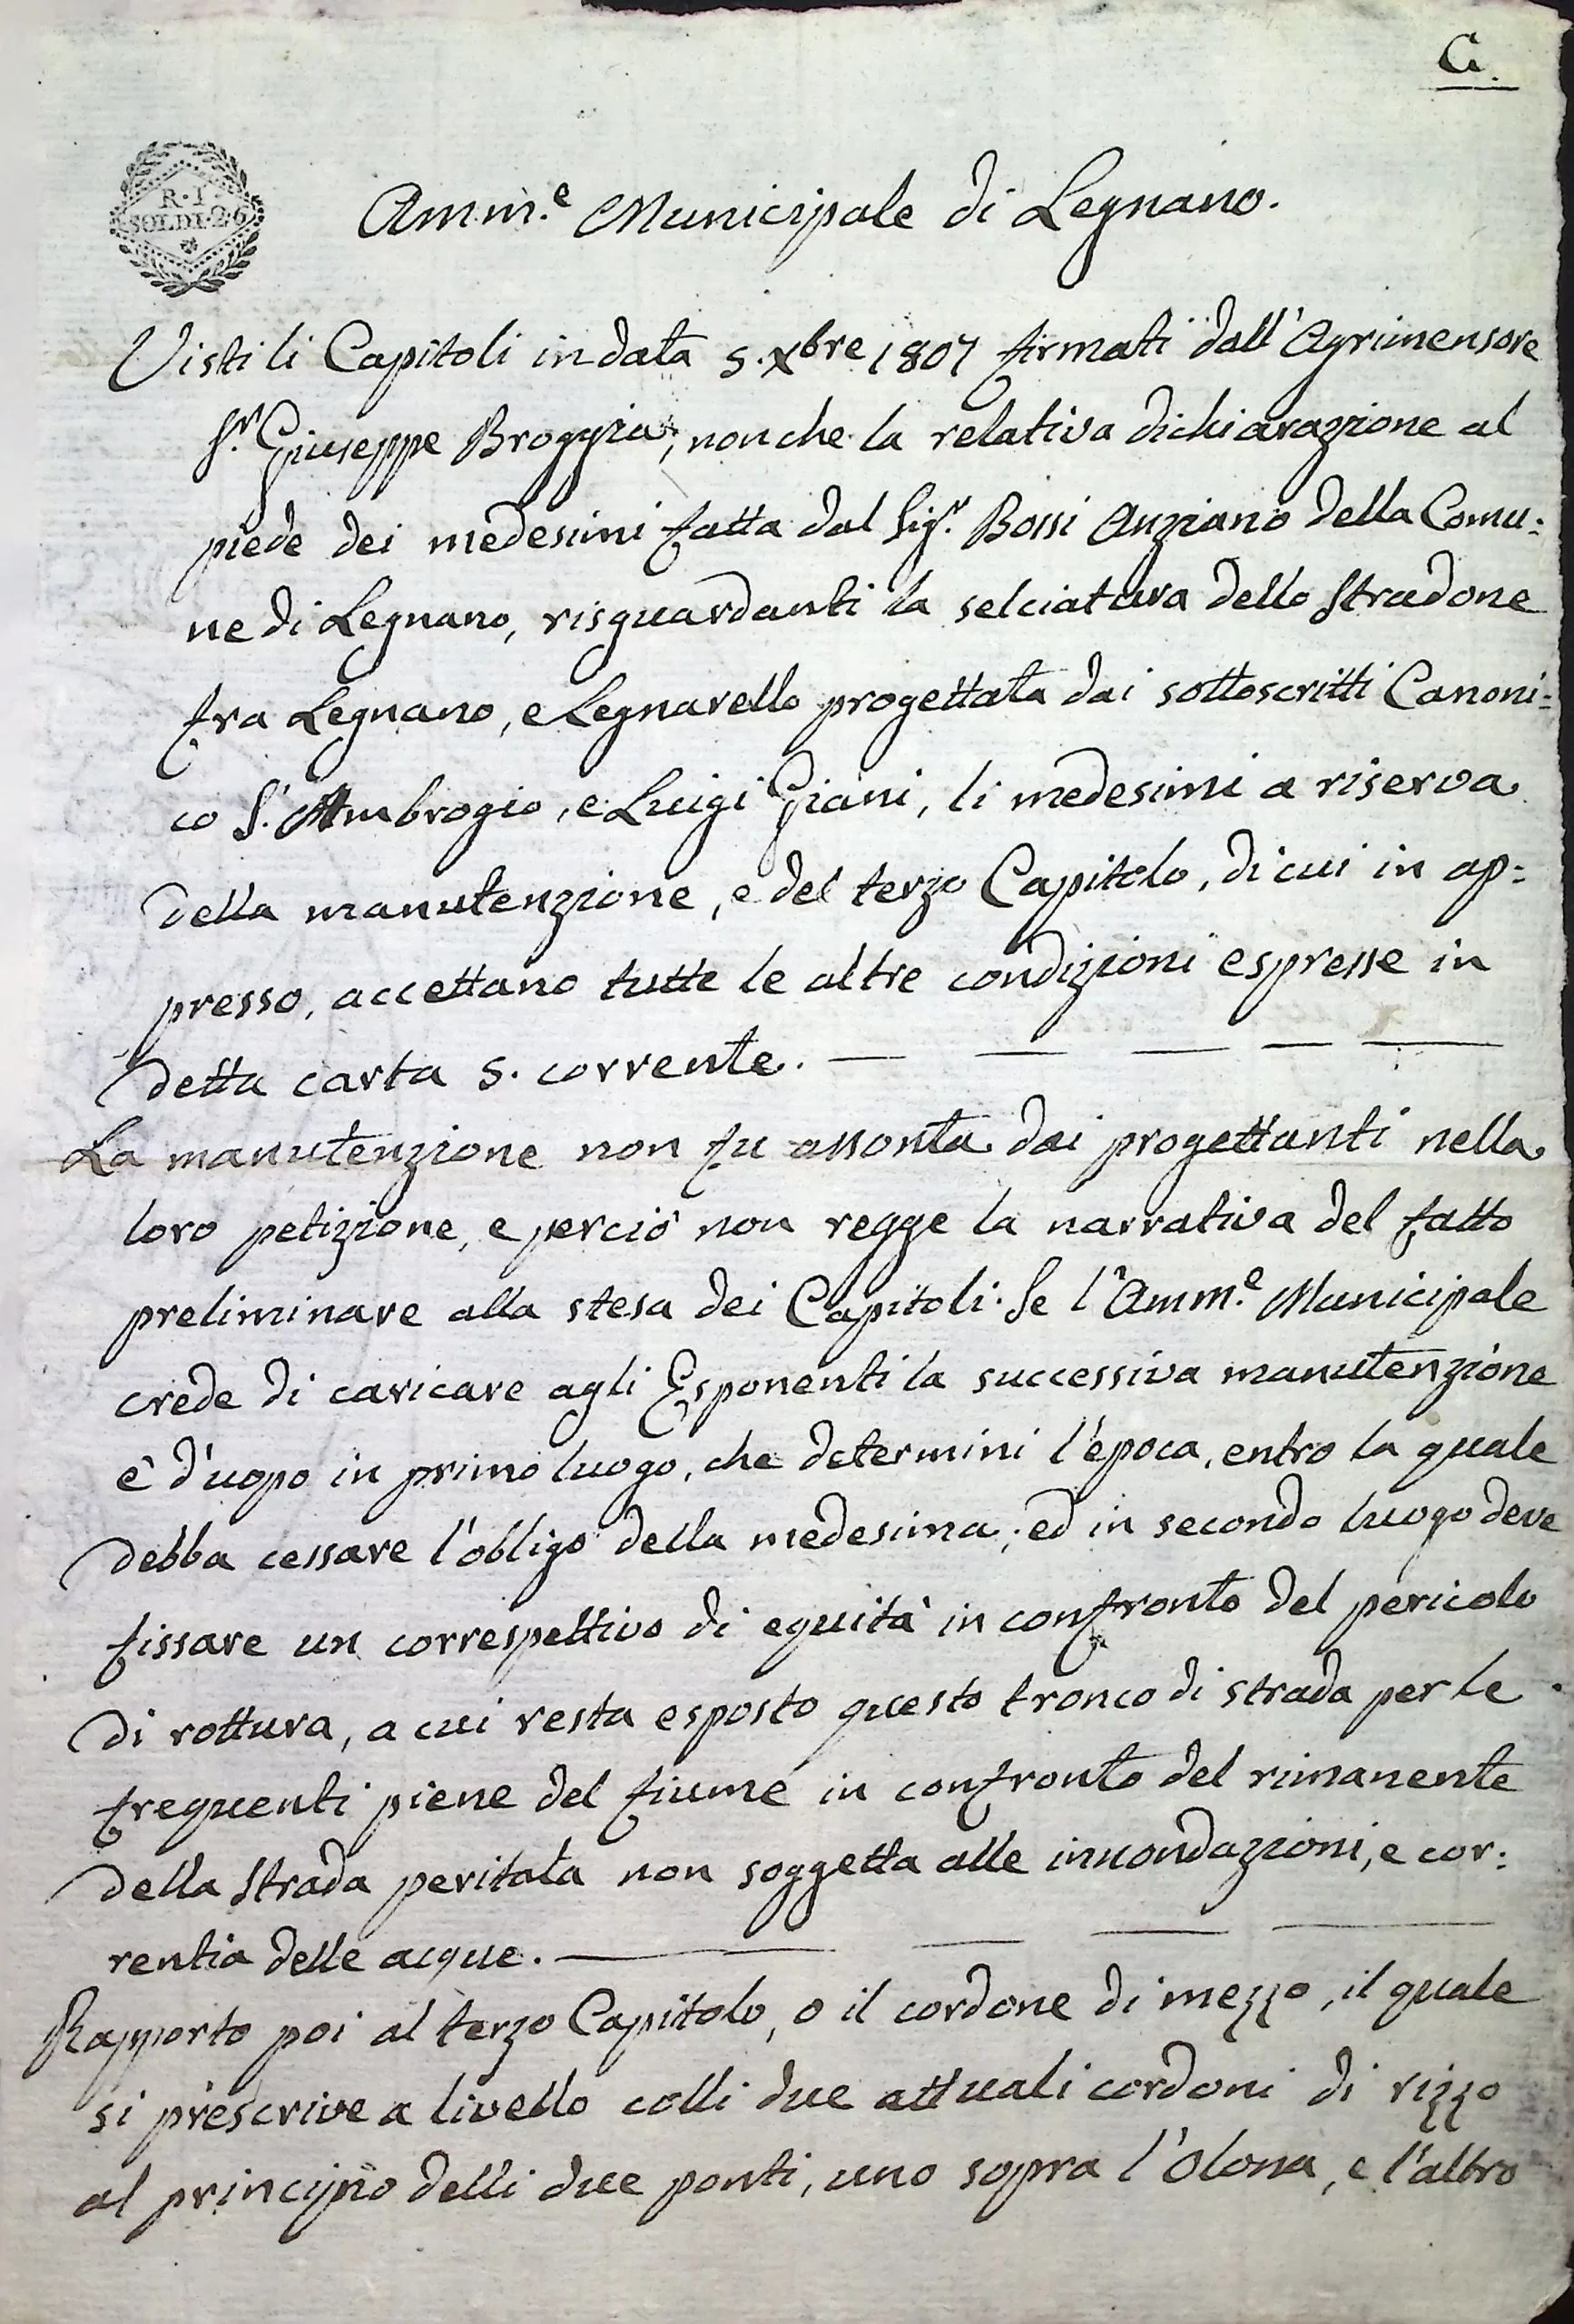 G.
R. I.
SOLDI. 26
Amm.e Municipale di Legnano.
Visti li Capitoli in data 5. Xbre 1807 firmati dall'Agrimensore
S.r Giuseppe Broggia, nonche la relativa dichiarazione al
piede dei medesimi fatta dal Sig.r Bossi Anziano della Comu:
ne di Legnano, risguardanti la selciatura dello Stradone
fra Legnano, e Legnarello progettata dai sottoscritti Canoni:
co S. Ambrogio, e Luigi Giani, li medesimi a riserva
della manutenzione, e del terzo Capitolo, di cui in ap:
presso, accettano tutte le altre condizioni espresse in
detta carta 5. corrente. — — — — —
La manutenzione non fu assonta dai progettanti nella
loro petizione, e perciò non regge la narrativa del fatto
preliminare alla stesa dei Capitoli. Se l'Amm.e Municipale
crede di caricare agli Esponenti la successiva manutenzione
è d'uopo in primo luogo, che determini l'epoca, entro la quale
debba cessare l'obligo della medesima; ed in secondo luogo deve
fissare un correspettivo di equità in confronto del pericolo
di rottura, a cui resta esposto questo tronco di strada per le
frequenti piene del fiume in confronto del rimanente
della Strada peritata non soggetta alle innondazioni, e cor:
rentia delle acque. — — — —
Rapporto poi al terzo Capitolo, o il cordone di mezzo, il quale
si prescrive a livello colli due attuali cordoni di rizzo
al principio delli due ponti, uno sopra l'Olona, e l'altro